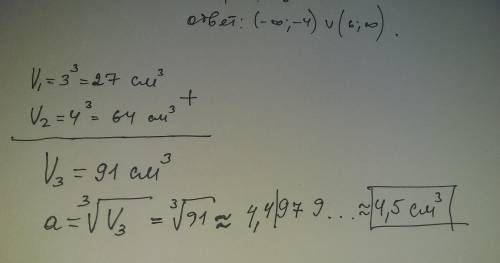 ответ: (-∞; -4) ∪ (6; ∞).
V₁ = 3³ = 27 см³
+
V₂ = 4³ = 64 см³
V₃ = 91 см³
a = ∛V₃ = ∛91 ≈ 4,4|979... ≈ 4,5 см³